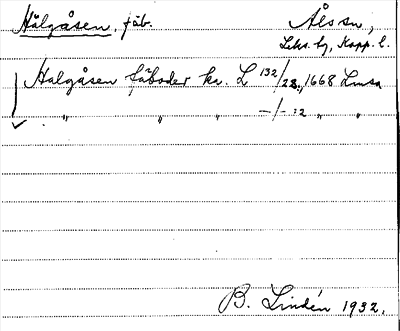 Hålgåsen, fäb. Åls sn,
Leks. bg, Kopp. l.
Halgåsen fäboder ha. L 132/23, 1668 Lmsa
" " " -/- :2 " "
B. Lindén 1932.